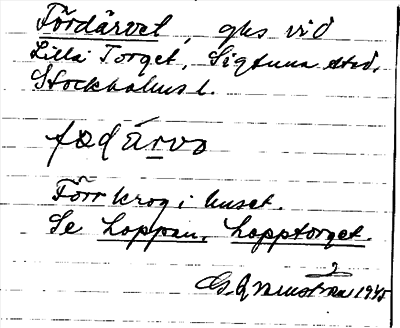 Fördärvet, gks vid
Lilla Torget, Sigtuna stad,
Stockholms l.
fɷdä́rvə
Förr krog i huset.
Se Loppan, Lopptorget.
1945